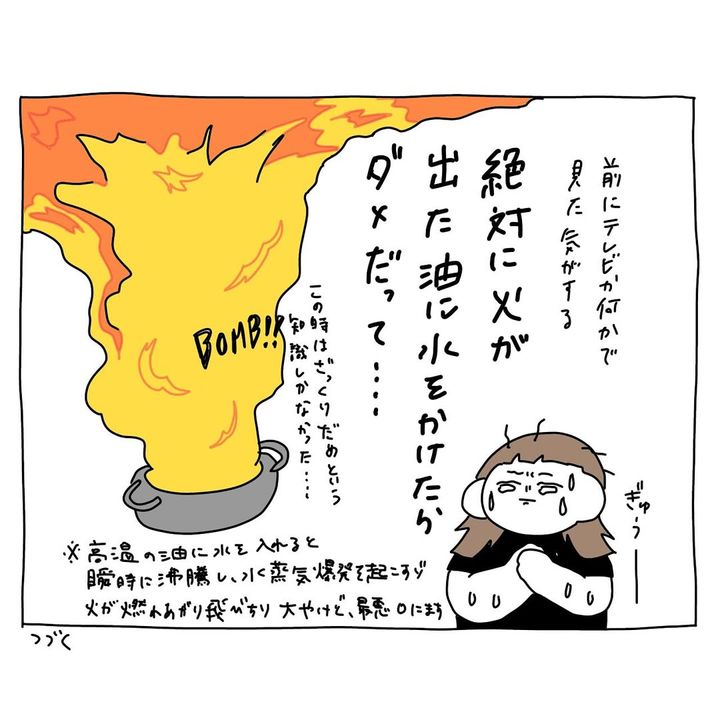 前にテレビか何かで
見た気がする
絶対に火が
出た油に水をかけたら
ダメだって....
BOMB!!
この時はざっくりだめという
知識しかなかった.....
ぎゅうー
※高温の油に水を入れると
瞬時に沸騰し、水蒸気爆発を起こすぞ
火が燃えあがり飛びちり大やけど、最悪〇にます
つづく